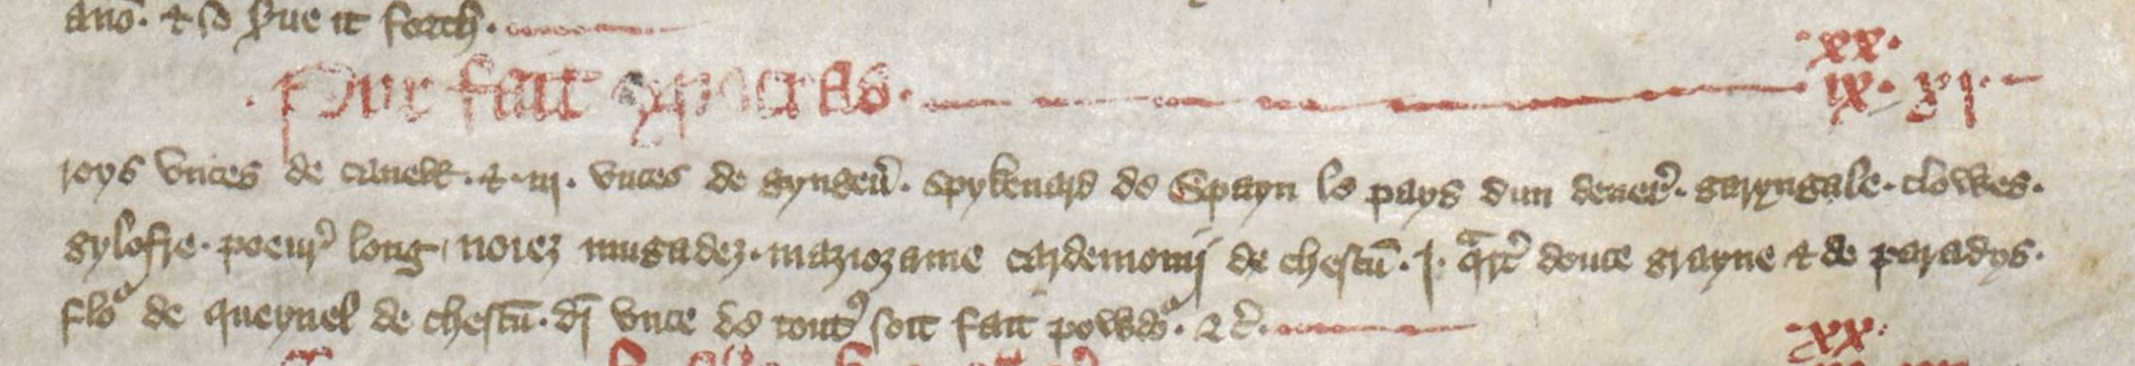 ano. & so s'ue it forth.
.xx.
Pur fait ypocras. ix. xj.
roys vnces de canell. & .iij. vnces de gyngeũ. spykenard de Spayn le pays dun dener̃. garyngale. clowes.
gylofre. poeur̃ long, noiez mugadez. maziozame cardemonij de chescũ. j. qᵃrt̃ douce grayne & de paradys.
floᵉ de queynel de chescũ. dĩ vnce de tout᷒ soit fait powdᵉ. &c̃.
.xx.